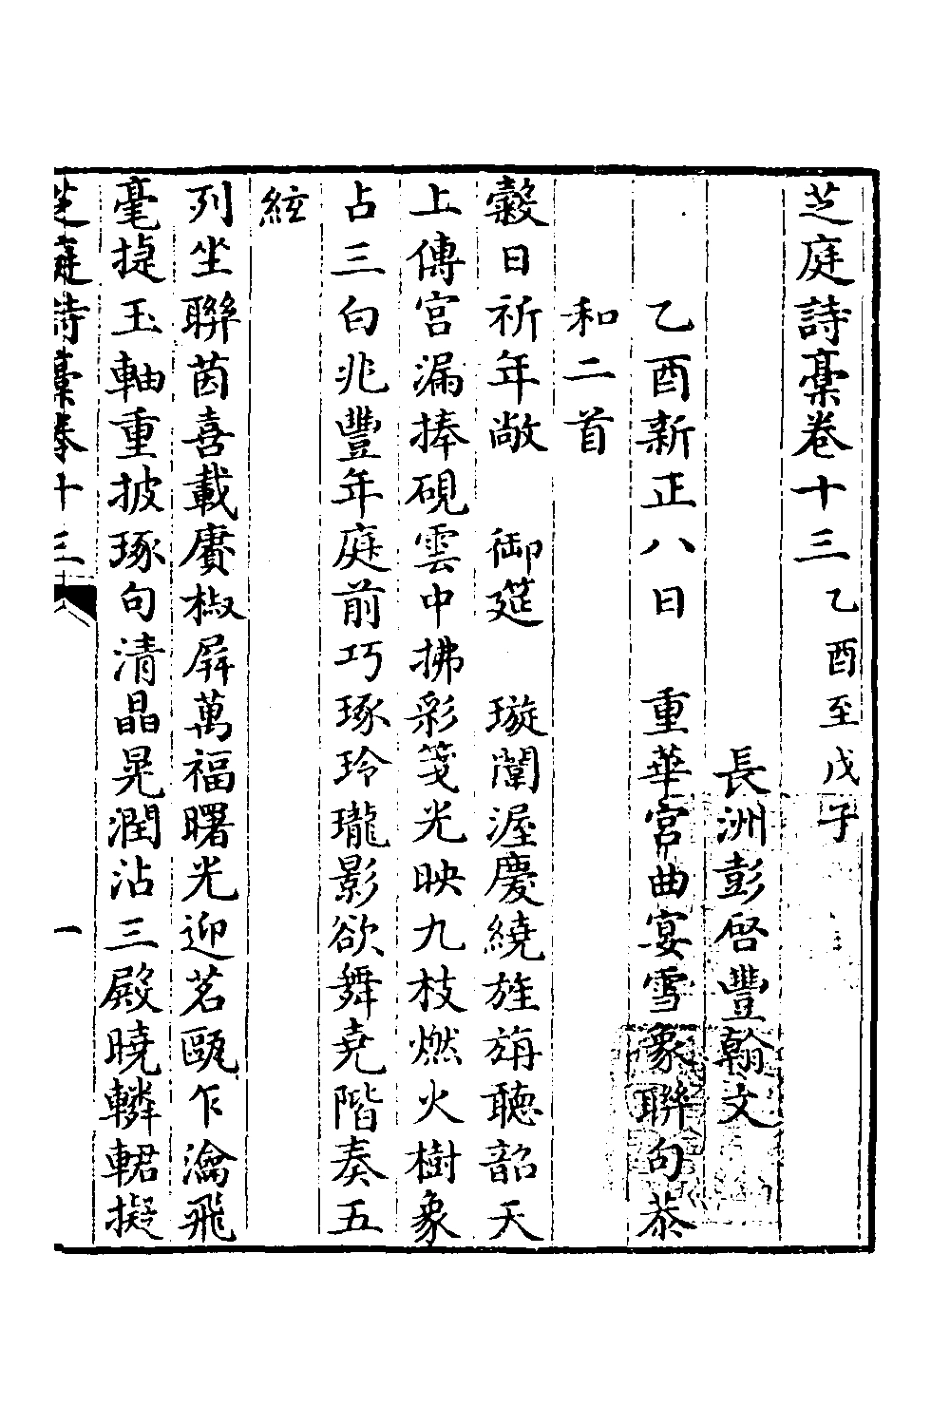 芝庭詩稾卷十三乙酉至戊子
長洲彭啓豐翰文
乙酉新正八日　重華宮曲宴雪象聯句恭
和二首
穀日祈年敞　御筵　璇闈渥慶繞旌旃聽韶天
上傳宮漏捧硯雲中拂彩箋光映九枝燃火樹象
占三白兆豐年庭前巧琢玲瓏影欲舞堯階奏五
絃
列坐聯茵喜載賡椒屏萬福曙光迎茗甌乍瀹飛
毫捷玉軸重披琢句清晶晃潤沾三殿曉轔輑擬
芝庭詩稾卷十三
一